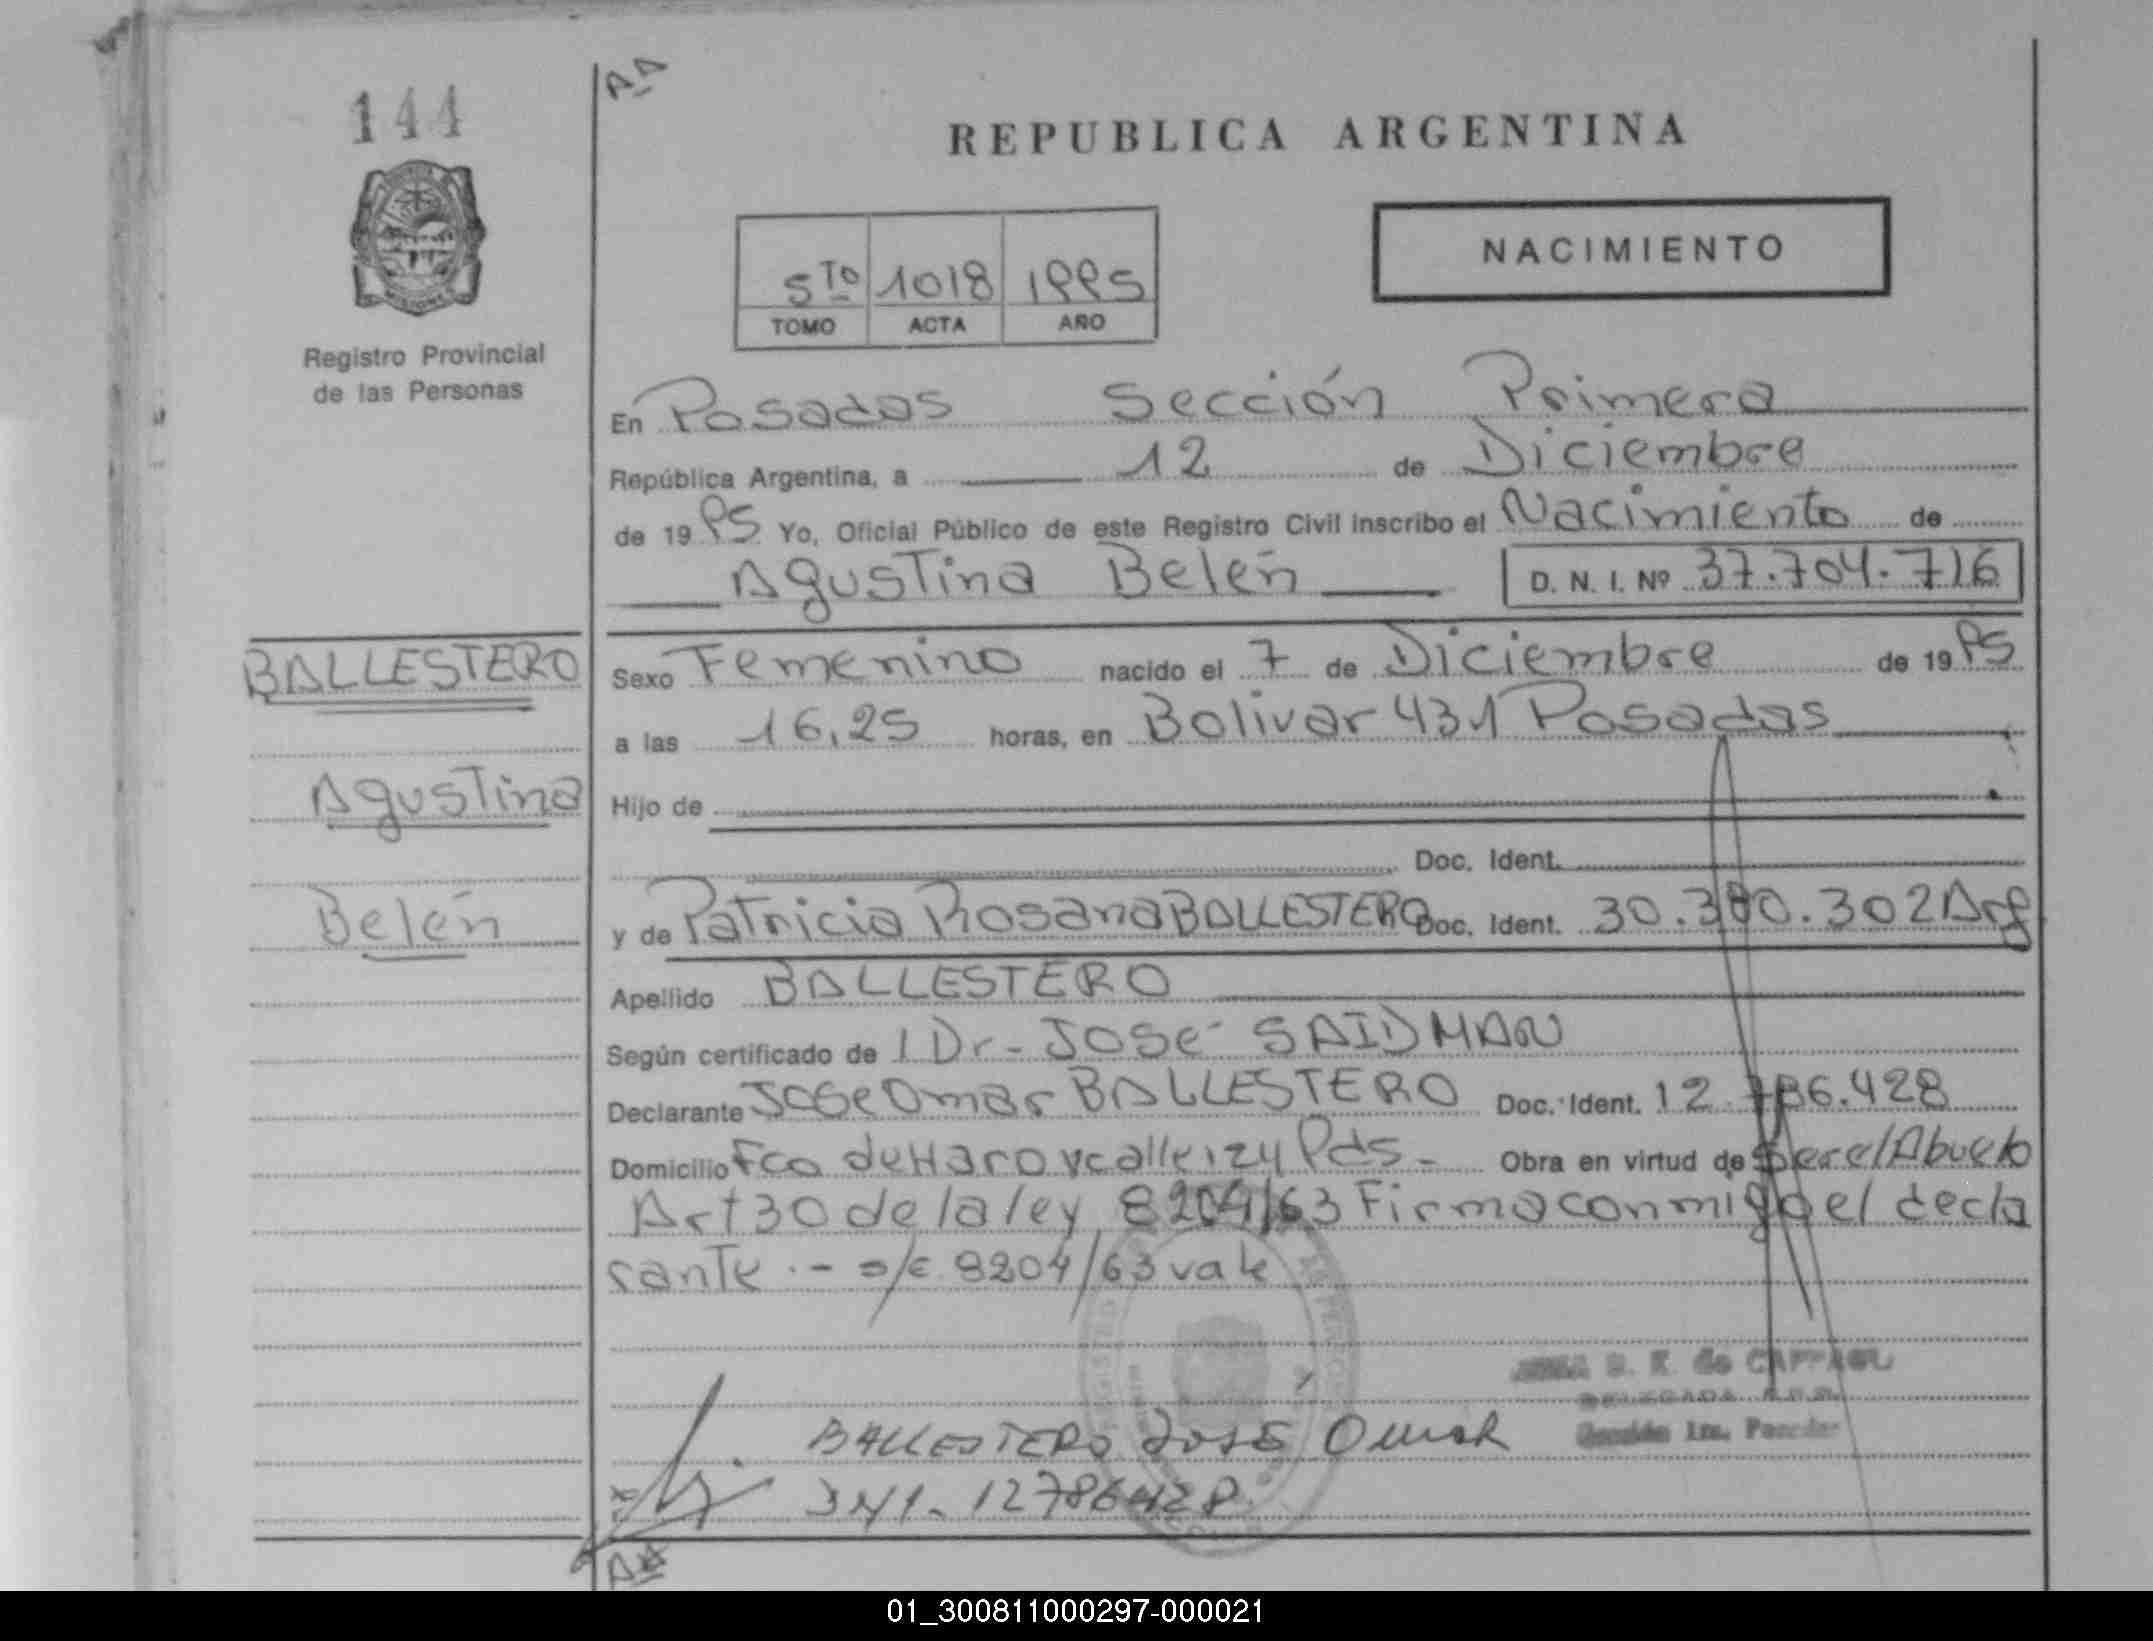 144
AA
REPUBLICA ARGENTINA
NACIMIENTO
5TO 1018 1995
TOMO ACTA AÑO
Registro Provincial
de las Personas
En Posadas Sección Primera
República Argentina, a 12 de Diciembre
de 1995 Yo, Oficial Público de este Registro Civil inscribo el Nacimiento de
Agustina Belén D. N. I. Nº 37.704.716
BALLESTERO
Agustina
Belén
Sexo Femenino nacido el 7 de Diciembre de 1995
a las 16,25 horas, en Bolivar 431 Posadas
Hijo de
Doc. Ident.
y de Patricia Rosana BALLESTERO Doc. Ident. 30.380.302 Arg
Apellido BALLESTERO
Según certificado de l Dr- JOSE SAIDMAN
Declarante Jose Omar BALLESTERO Doc. Ident. 12.786.428
Domicilio Fco de Haro y calle 124 Pds- Obra en virtud de Ser el Abuelo
Art 30 de la ley 8204/63 Firma conmigo el decla
rante .- s/e 8204/63 vale
de
BALLESTERO JOSE Omar
DNI. 12786428
01_300811000297-000021